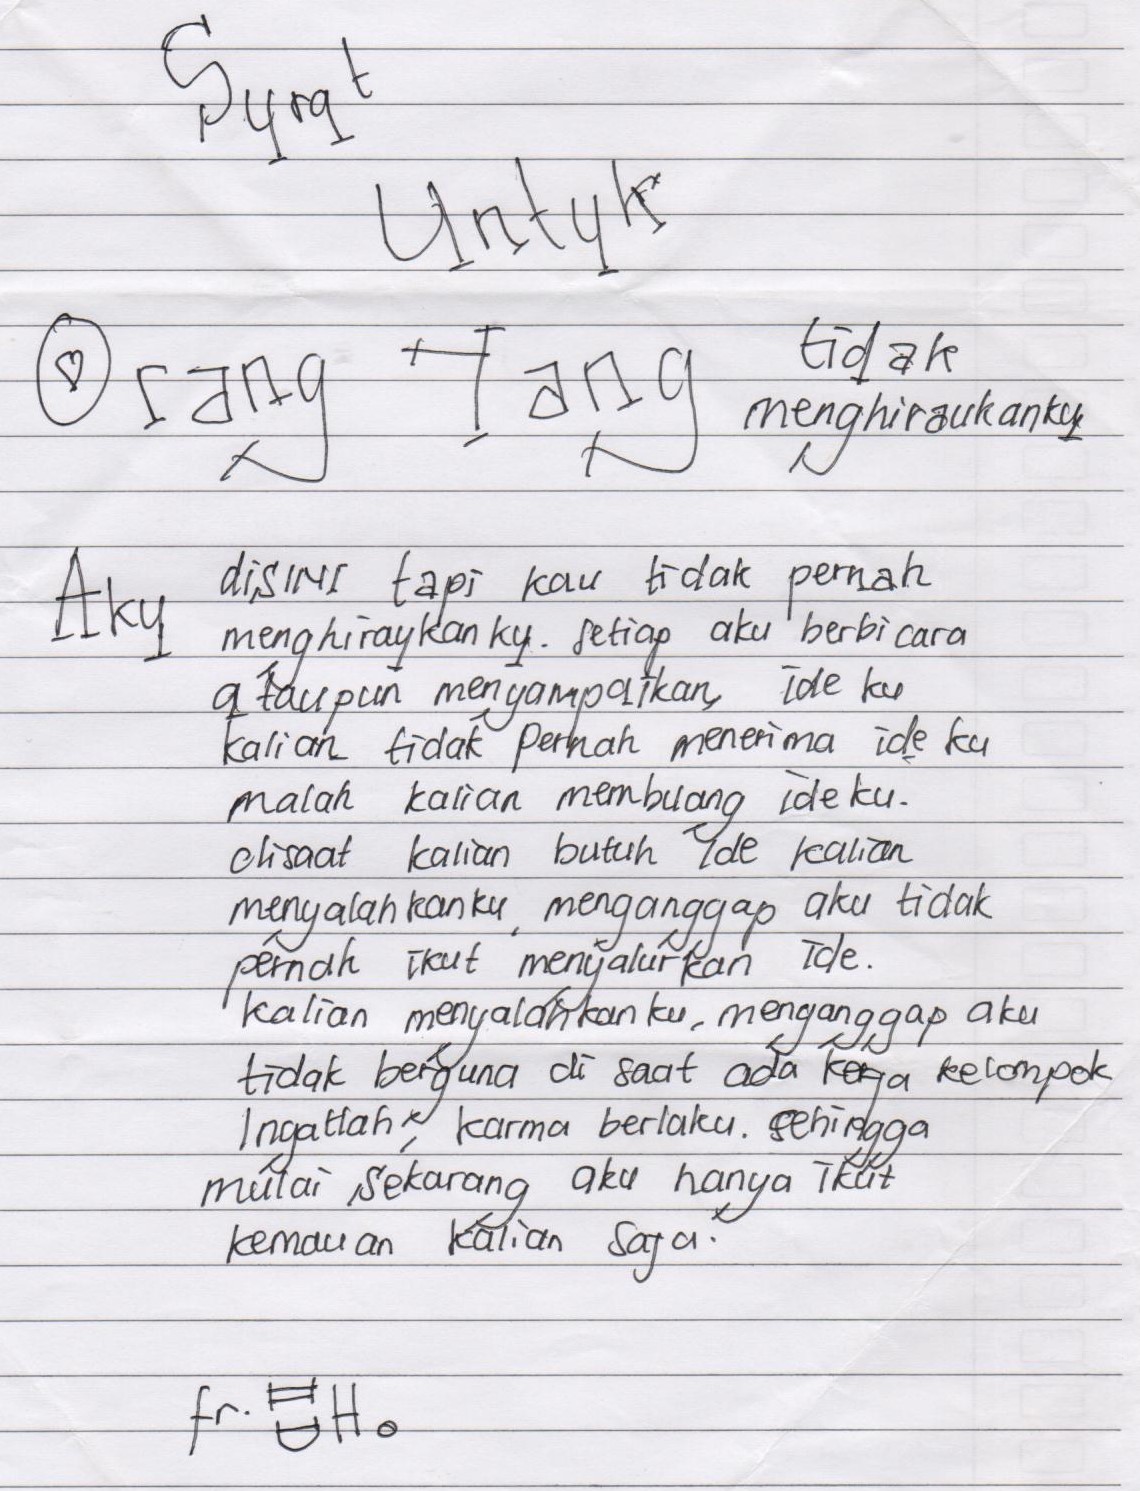 Surat
Untuk
Orang Yang tidak
menghiraukanku
Aku disini tapi kau tidak pernah
menghiraukanku. setiap aku berbicara
ataupun menyampaikan, ide ku
kalian tidak pernah menerima ide ku
malah kalian membuang ideku.
disaat kalian butuh ide kalian
menyalahkanku, menganggap aku tidak
pernah ikut menyalurkan ide.
kalian menyalahkanku, menganggap aku
tidak berguna di saat ada kerja kelompok
Ingatlah, karma berlaku. sehingga
mulai sekarang aku hanya ikut
kemauan kalian saja.
fr.